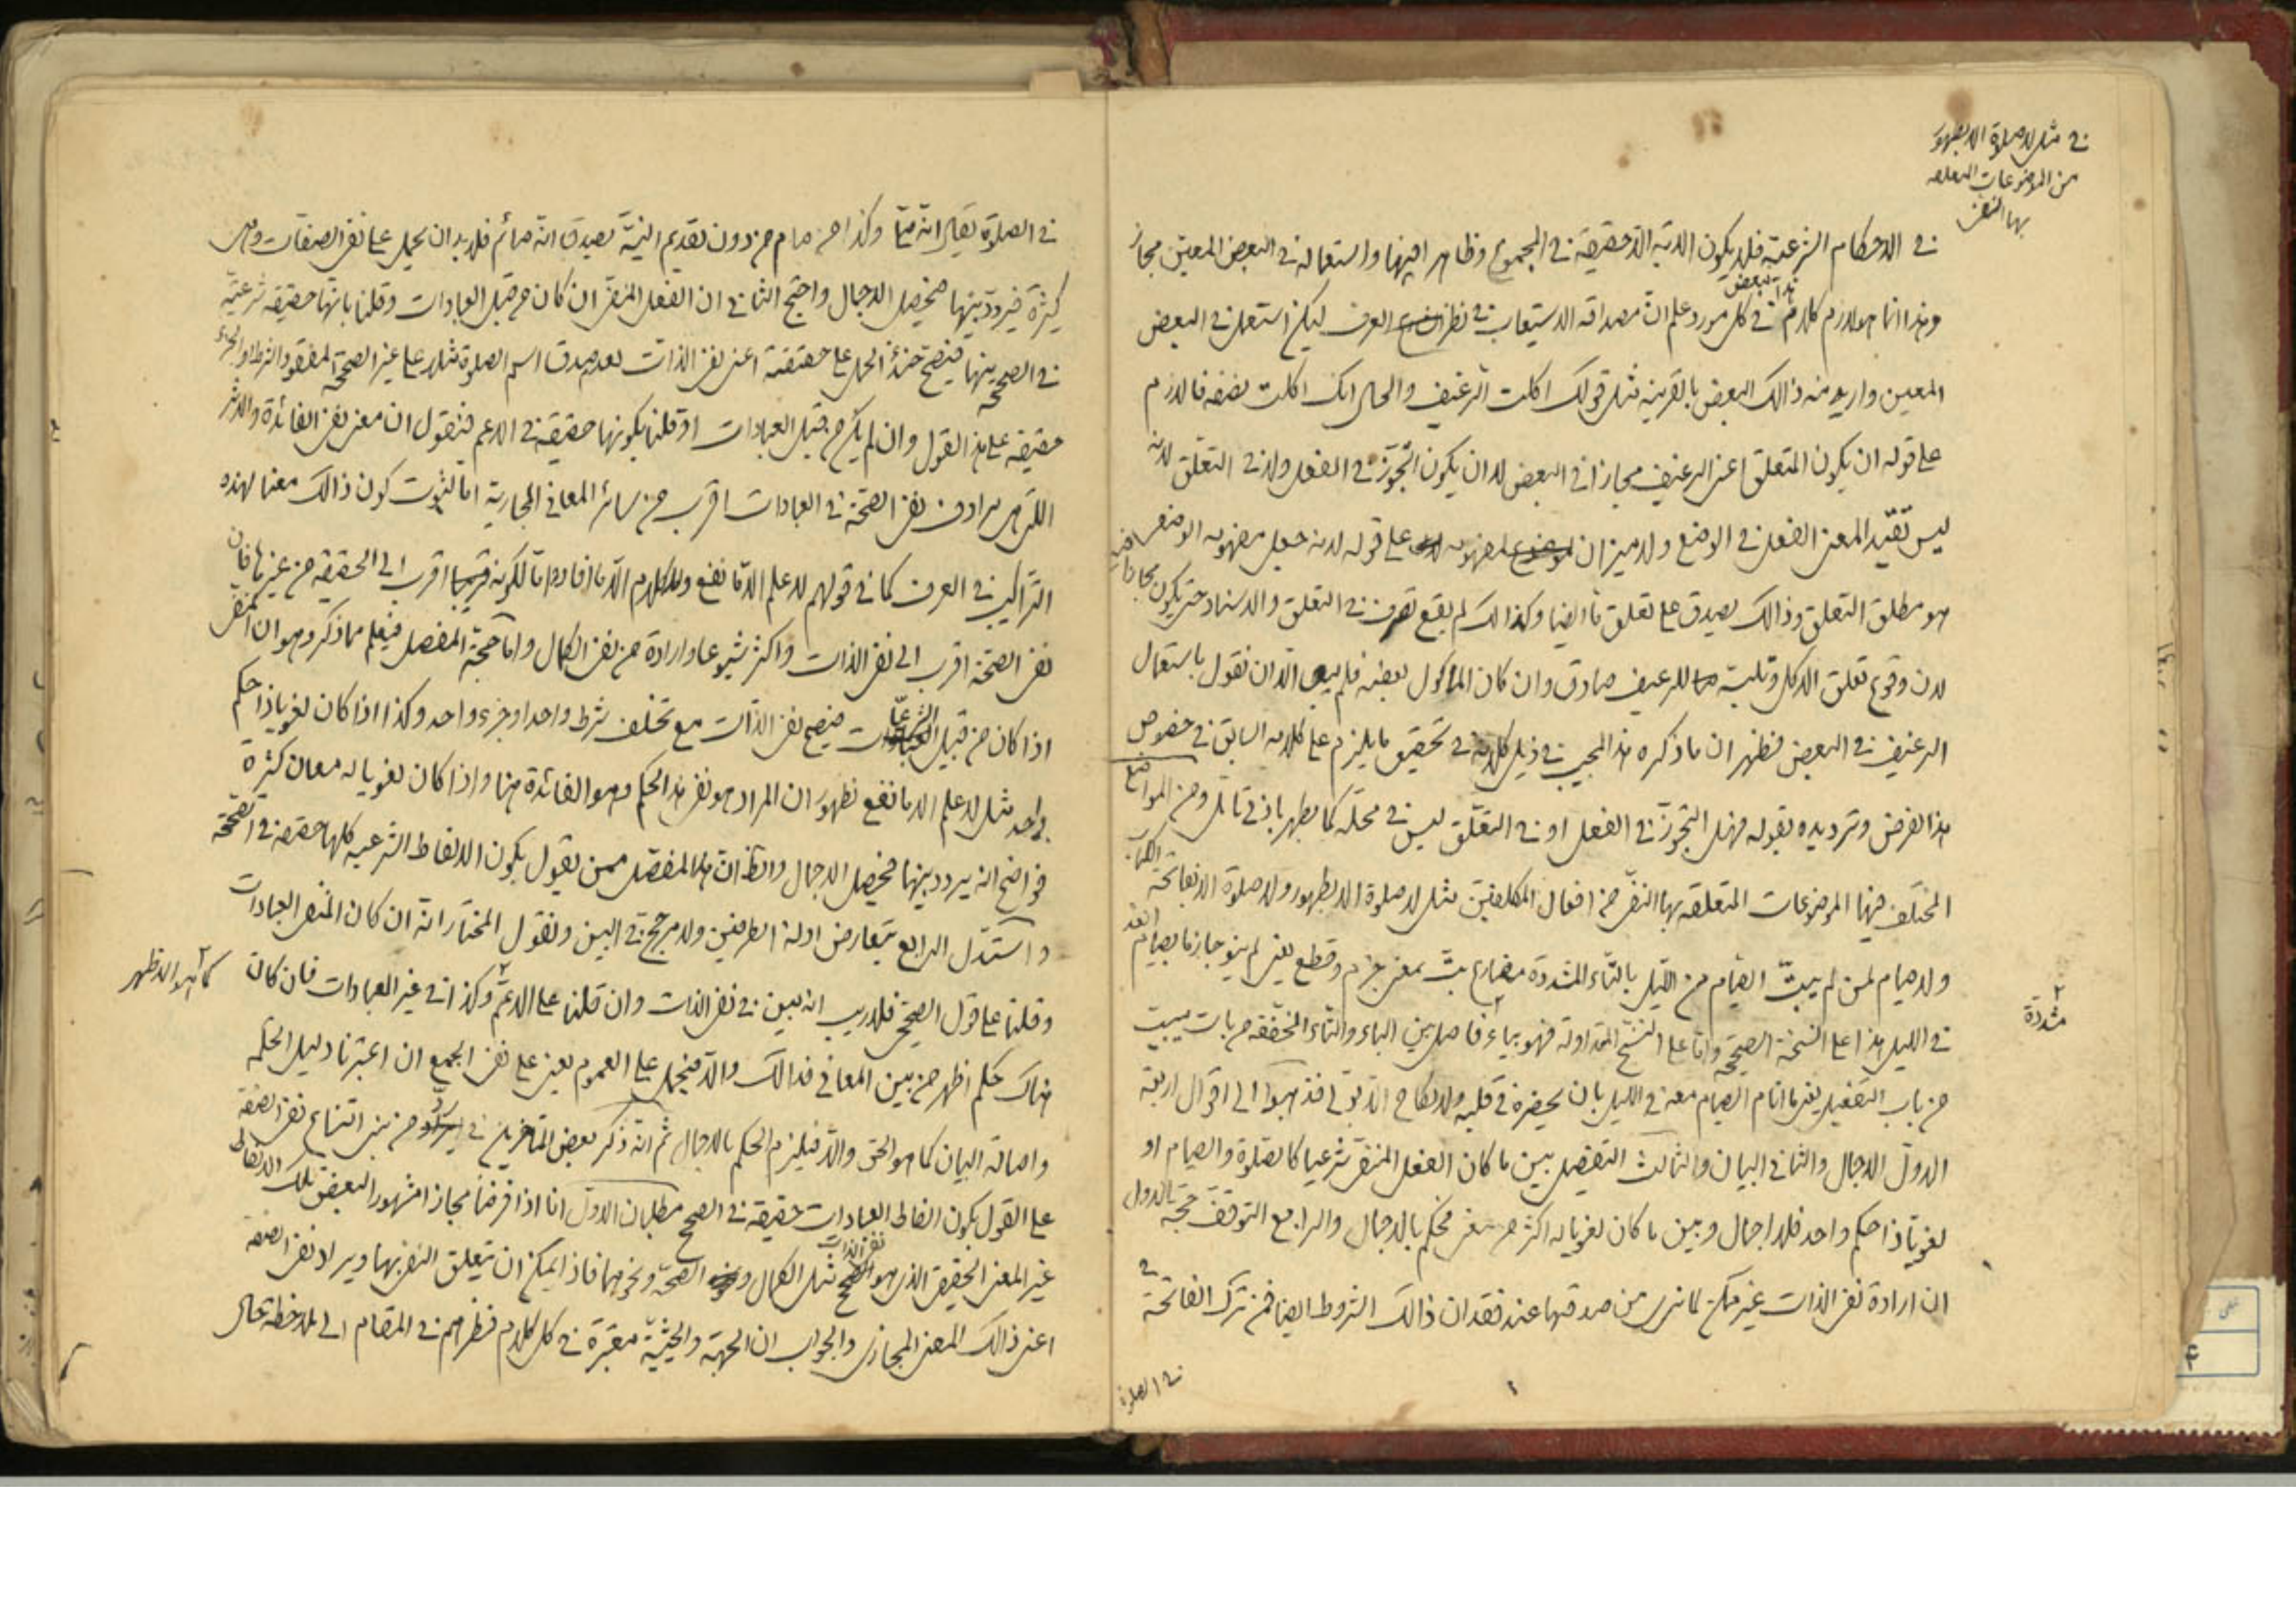 في مثل لا صلوة الا بطهور
من الموضوعات المتعلقة
بها النفي
في الاحكام الشرعية فلا يكون الاية الا حقيقة في المجموع وظاهرا فيها واستعماله في البعض المعين مجاز
وهذا انما هو لازم كلامه في كل مورد علم ان مصداقه الاستيعاب في نظر العرف ليكن استعمل في البعض
المعين واريد منه ذالك البعض بالقرينة مثل قولك اكلت الرغيف والحال انك اكلت نصفه فالازم
على قوله ان يكون المتعلق اعني الرغيف مجازا في البعض لا ان يكون التجوز في الفعل ولا في التعلق لانه
ليس تقييد المعنى الفعل في الوضع ولا ميزان لمفهومه على قوله لانه جعل مفهومه الوضعي
هو مطلق التعلق وذالك يصدق على تعلق ما ايضا وكذالك لم يقع تصرف في التعلق والاسناد حتى يكون مجازا
لان وقوع تعلق الاكل وتلبسه للرغيف صادق وان كان الماكول بعضه فلم يبق الا ان نقول باستعمال
الرغيف في البعض فظهر ان ما ذكره هذا المجيب في ذيل كلامه في تحقيق ما يلزم على كلامه السابق في خصوص
هذا الفرض وترديده بقوله فهل التجوز في الفعل او في التعلق ليس في محله كما يظهر بادنى تامل ومن المواضع
المختلف فيها الموضوعات المتعلقة بها النفي من افعال المكلفين مثل لا صلوة الا بطهور ولا صلوة الا بفاتحة الكتاب
ولا صيام لمن لم يبت الصيام من الليل بالتاء المشددة مضارع بت بمعنى جزم وقطع يعني لم ينو جازما بصيام الغد
في الليل هذا على النسخة الصحيحة واما على النسخ المتداولة فهو بياء فاصل بين الباء والتاء المخففة من بات يبيت
مشددة
من باب التفعيل يعني ما انام الصيام معه في الليل بان يحضره في قلبه ولا نكاح الا بولي فذهبوا الى اقوال اربعة
الاول الاجمال والثاني البيان والثالث التفصيل بين ما كان الفعل المنفي شرعيا كالصلوة والصيام او
لغويا ذا حكم واحد فلا اجمال وبين ما كان لغويا له اكثر من معنى فحكم بالاجمال والرابع التوقف حجة الاول
ان ارادة نفي الذات غير ممكن لما نرى من صدقها عند فقدان ذالك الشروط ايضا فمن ترك الفاتحة
في الصلوة
في الصلوة يقال انه صلى وكذا من صام من دون تقديم النية يصدق انه صائم فلا بد ان يحمل على نفي الصفات وهي
كثيرة فيردد بينها فيحصل الاجمال واحتج الثاني ان الفعل المنفي ان كان من قبيل العبادات وقلنا بانها حقيقة شرعية
في الصحيح منها فيصح حينئذ الحمل على حقيقته اعني نفي الذات لعدم صدق اسم الصلوة مثلا على غير الصحيحة المفقود الشرط او الجزء
حقيقة على هذا القول وان لم يكن من قبيل العبادات او قلنا بكونها حقيقة في الاعم فنقول ان معنى نفي الفائدة والاثر
التي هي مرادف نفي الصحة في العبادات اقرب من سائر المعاني المجازية اما لثبوت كون ذالك معنا لهذه
التراكيب في العرف كما في قولهم لا علم الا ما نفع ولا كلام الا ما افاد واما لكونه اقرب الى الحقيقة من غيرها فان
نفي الصحة اقرب الى نفي الذات واكثر شيوعا وارادة من نفي الكمال واما حجة المفصل فيعلم مما ذكر وهو ان المنفي
اذا كان من قبيل الشرعيات فيصح نفي الذات مع تخلف شرط واحد او جزء واحد وكذا اذا كان لغويا ذا حكم
واحد مثل لا علم الا ما نفع لظهور ان المراد هو نفي هذا الحكم وهو الفائدة هنا واذا كان لغويا له معان كثيرة
فواضح انه يردد بينها فيحصل الاجمال والظاهر ان هذا المفصل ممن يقول بكون الالفاظ الشرعية كلها حقيقة في الصحيحة
واستدل الرابع بتعارض ادلة الطرفين ولا مرجح في البين ونقول المختار انه ان كان المنفي العبادات
وقلنا على قول الصحيح فلا ريب انه مبين في نفي الذات وان قلنا على الاعم وكذا في غير العبادات فان كان
كما هو الاظهر
هناك حكم اظهر من بين المعاني فذالك والا فيحمل على العموم يعني على نفي الجمع ان اعتبرنا دليل الحكمة
واصالة البيان كما هو الحق والا فيلزم الحكم بالاجمال ثم انه ذكر بعض المتاخرين في رد من بنى امتناع نفي الصفة
على القول بكون الفاظ العبادات حقيقة في الصحيح مطلبان الاول انا اذا فرضنا مجازا مشهورا لبعض تلك الالفاظ
غير المعنى الحقيقي الذي هو نفي الذات مثل الكمال والصحة ونحوهما فاذا يمكن ان يتعلق النفي بها ويراد نفي الصفة
اعني ذالك المعنى المجازي والجواب ان الجهة والحيثية معتبرة في كل كلام فنظرهم في المقام الى ملاحظة حال